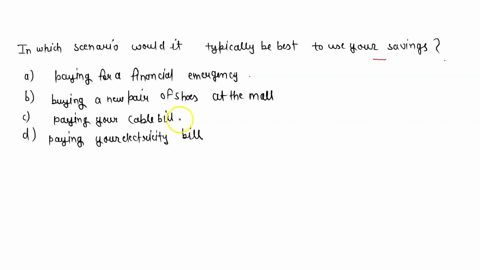 In which scenario would it typically be best to use your savings?
a) paying for a financial emergency.
b) buying a new pair of shoes at the mall
c) paying your cable bill.
d) paying your electricity bill